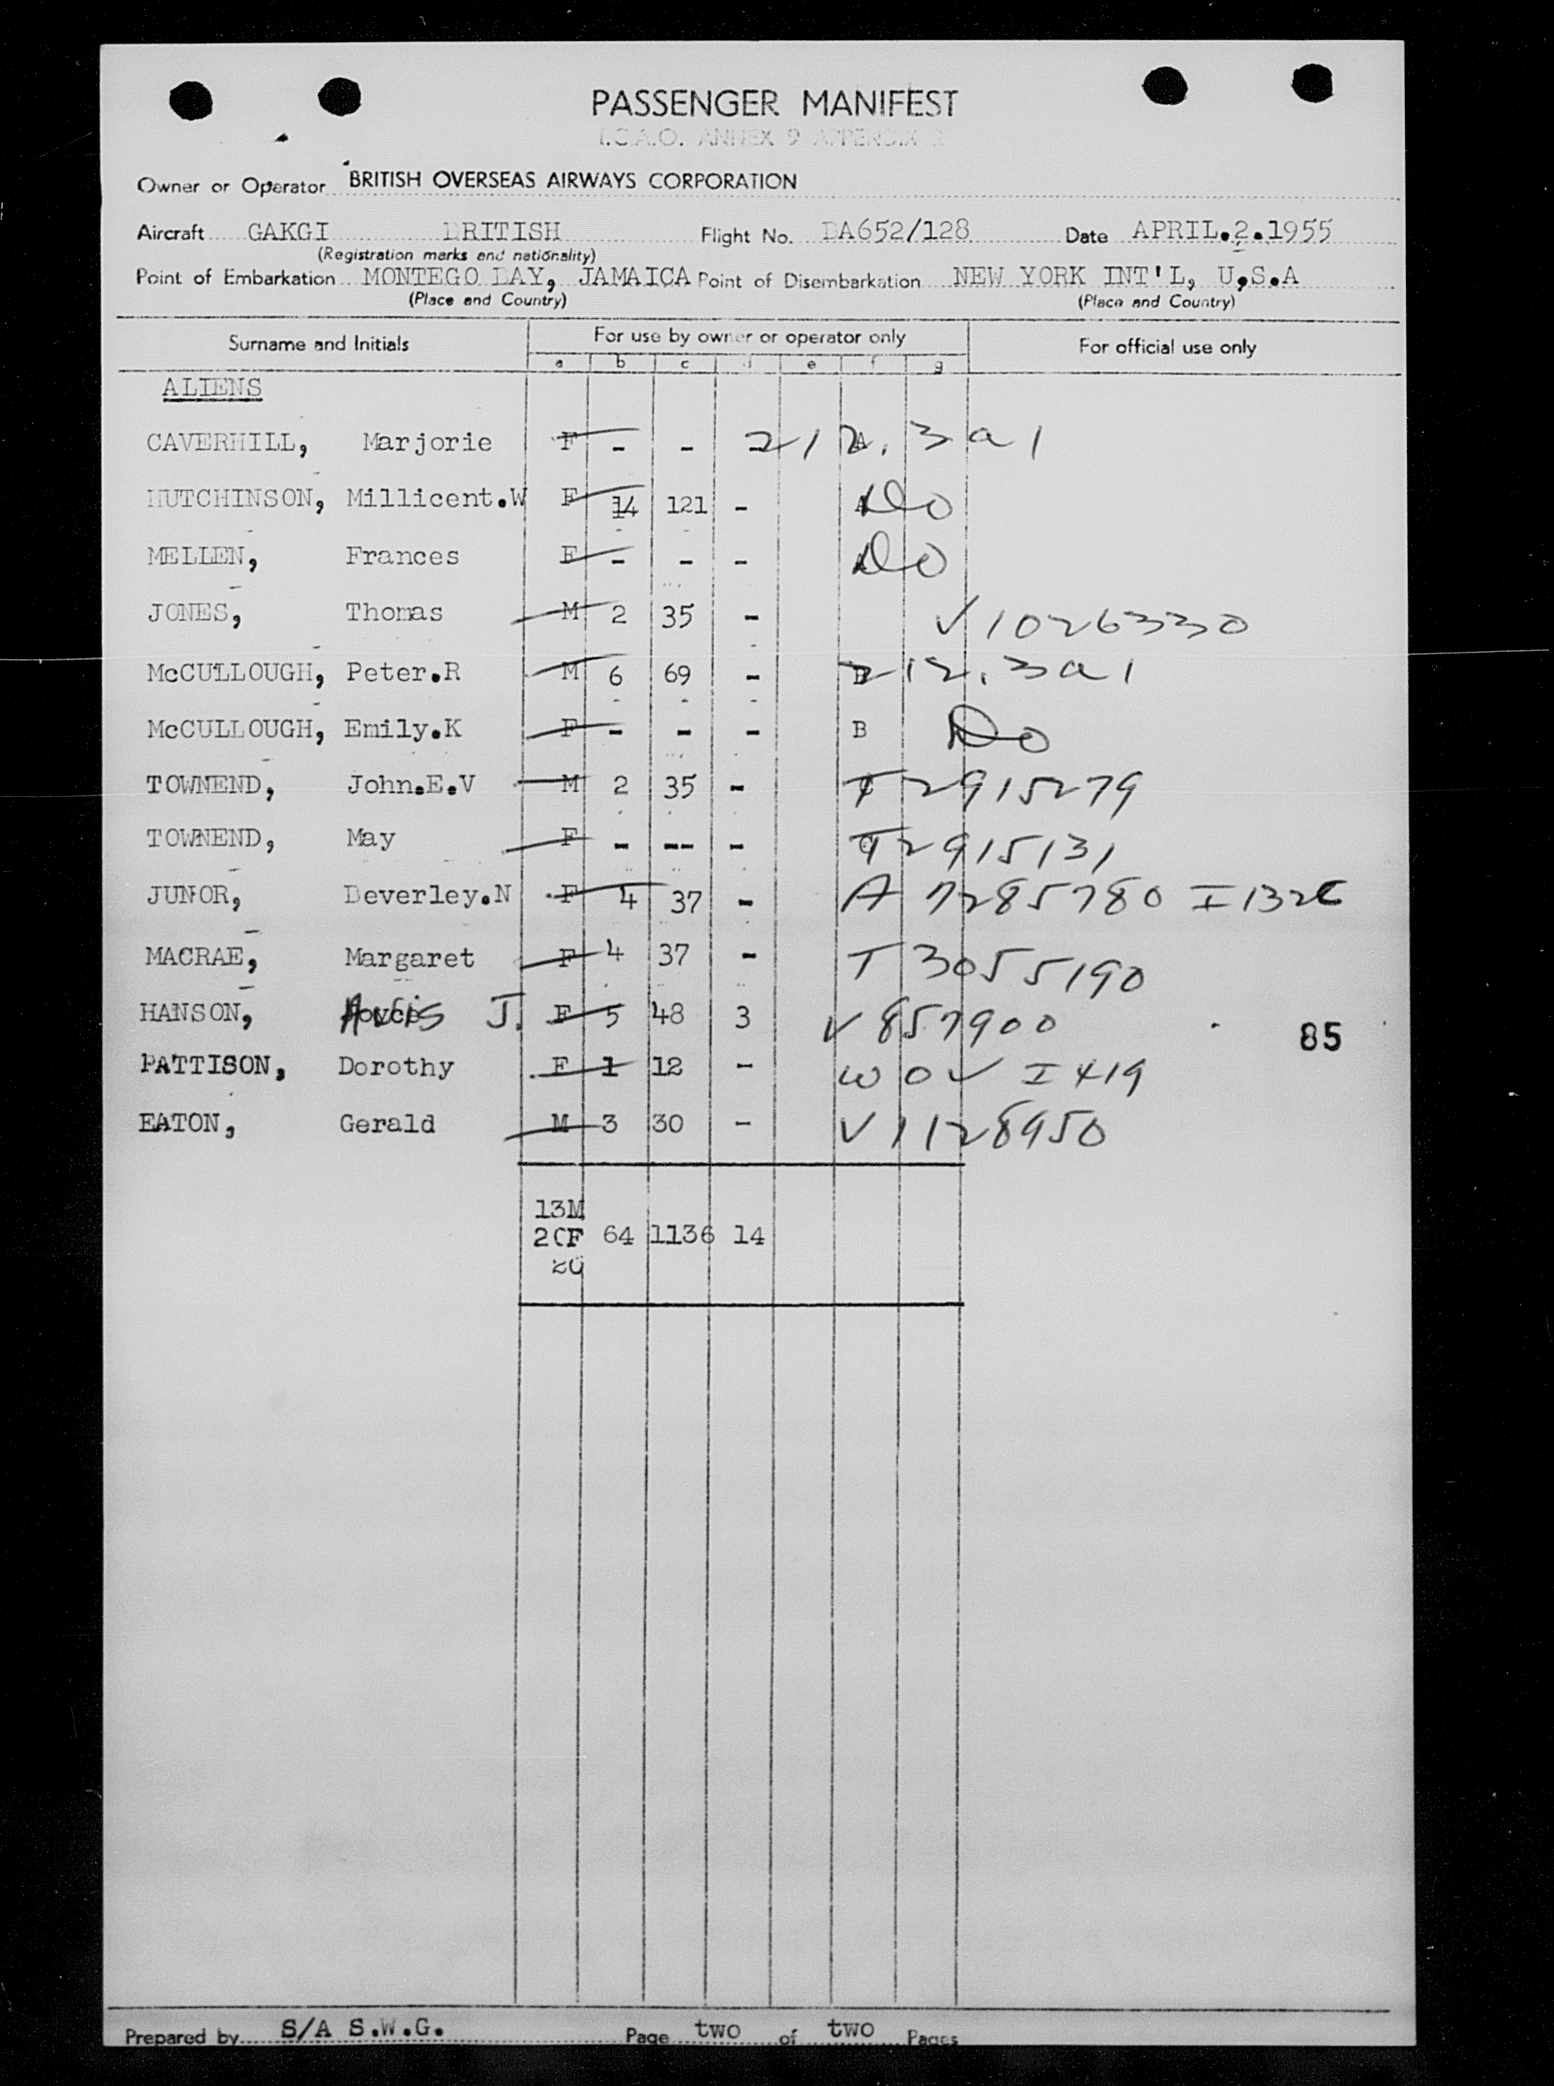 PASSENGER MANIFEST
I.C.A.O. ANNEX 9 APPENDIX
Owner or Operator BRITISH OVERSEAS AIRWAYS CORPORATION
Aircraft GAKGI BRITISH Flight No. BA652/128 Date APRIL.2.1955
(Registration marks and nationality)
Point of Embarkation MONTEGO BAY, JAMAICA Point of Disembarkation NEW YORK INT'L, U.S.A
(Place and Country) (Place and Country)
Surname and Initials For use by owner or operator only For official use only
a b c d e f g
ALIENS
CAVERHILL, Marjorie F - - - A 212.3a1
HUTCHINSON, Millicent.W F 14 121 - A Do
MELLEN, Frances F - - - A Do
JONES, Thomas M 2 35 - V1026330
McCULLOUGH, Peter.R M 6 69 - B 212.3a1
McCULLOUGH, Emily.K F - - - B Do
TOWNEND, John.E.V M 2 35 - T2915279
TOWNEND, May F - -- - T2915131
JUNOR, Beverley.N F 4 37 - A 7285780 I132C
MACRAE, Margaret F 4 37 - T 3055190
HANSON, Avis J. F 5 48 3 V857900
85
PATTISON, Dorothy F 1 12 - WOV I419
EATON, Gerald M 3 30 - V1128950
13M
20F 64 1136 14
Prepared by S/A S.W.G. Page two of two Pages